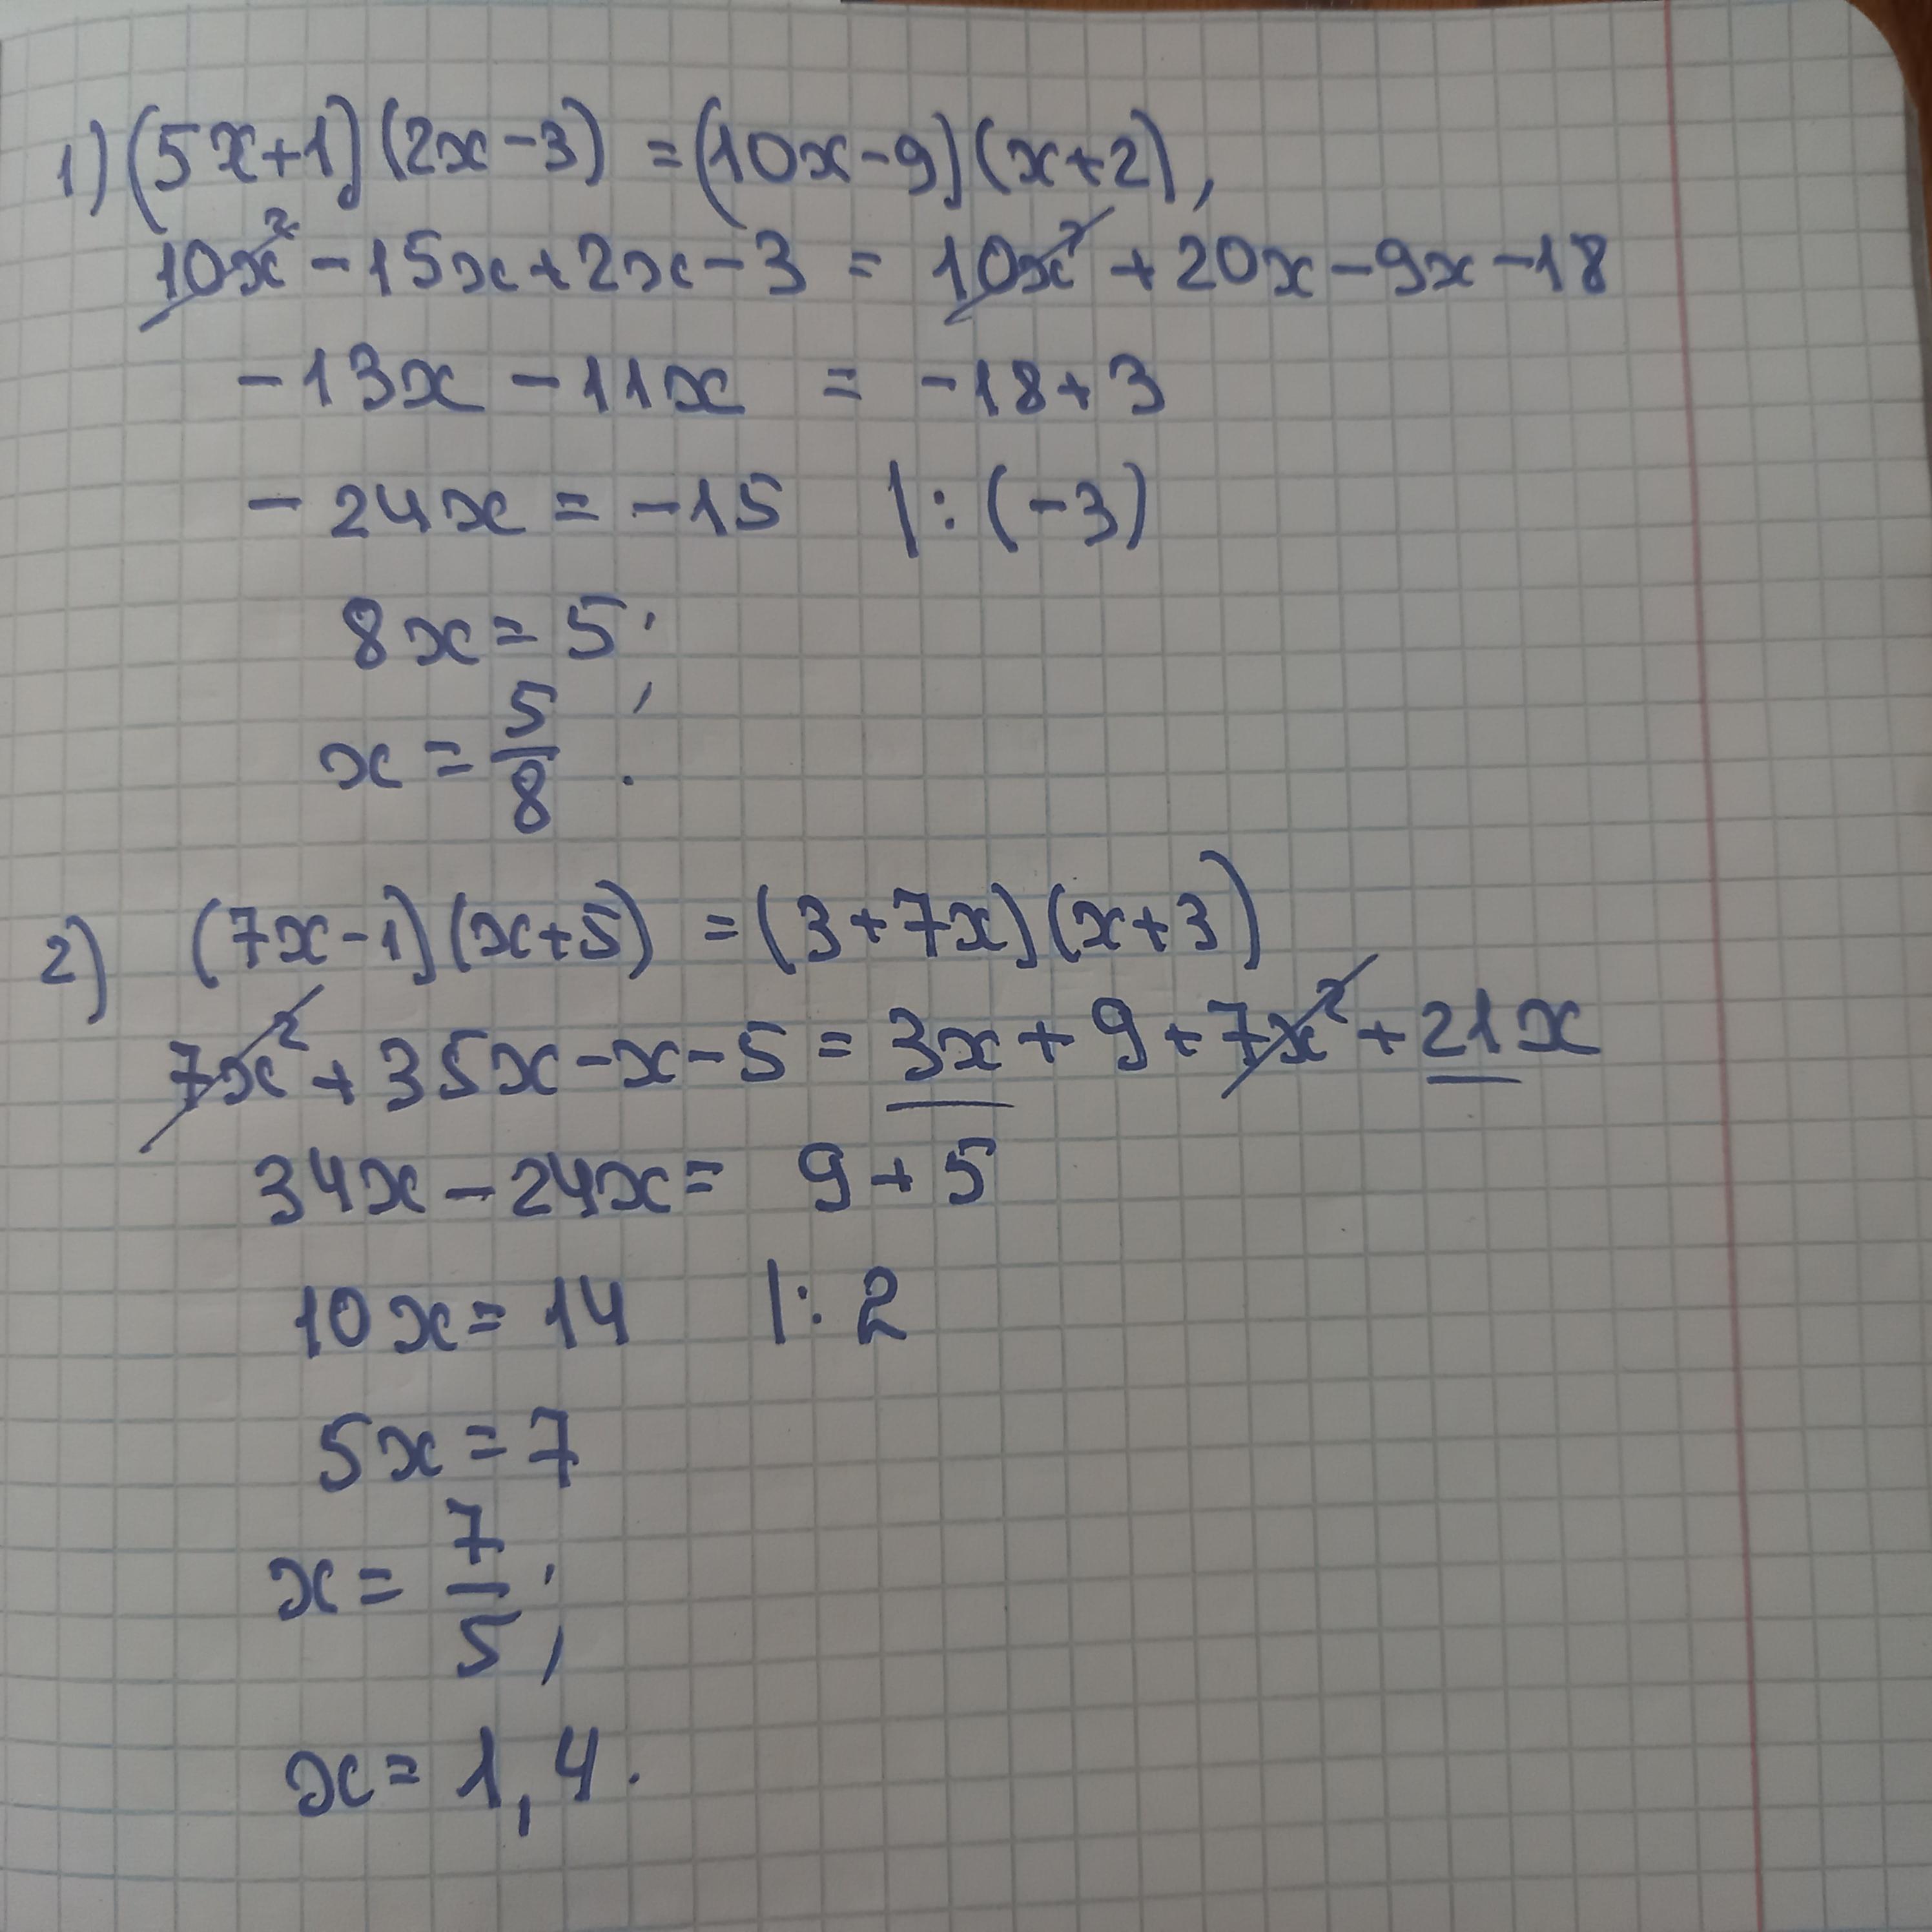 1) (5x+1)(2x-3) = (10x-9)(x+2),
10x² - 15x + 2x - 3 = 10x² + 20x - 9x - 18
-13x - 11x = -18 + 3
-24x = -15 |:(-3)
8x = 5;
x = 5/8.
2) (7x-1)(x+5) = (3+7x)(x+3)
7x² + 35x - x - 5 = 3x + 9 + 7x² + 21x
34x - 24x = 9 + 5
10x = 14 |: 2
5x = 7
x = 7/5;
x = 1,4.